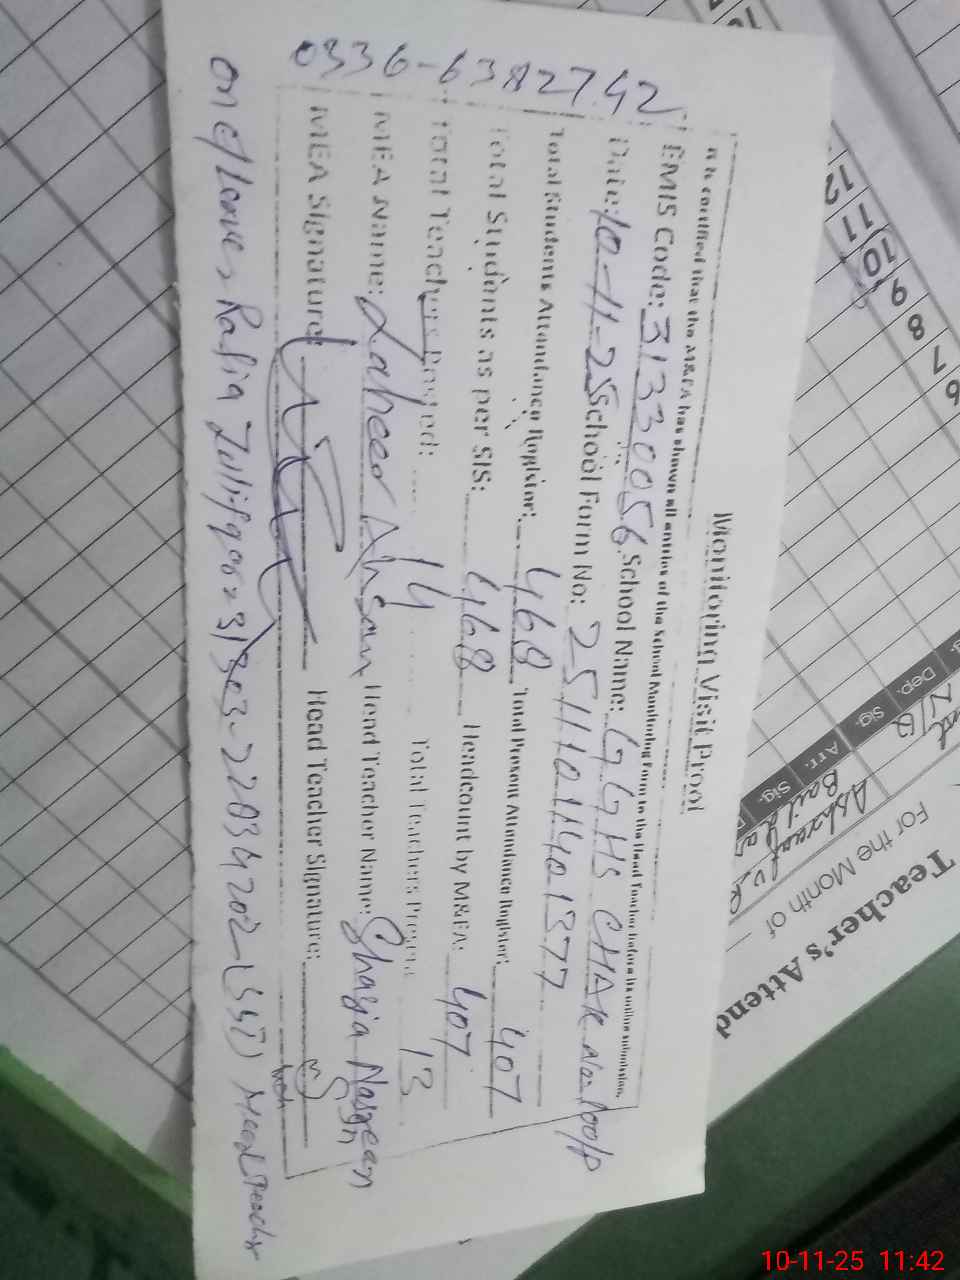 Monitoring Visit Proof
It is certified that the M&EA has shown all entries of the School Monitoring Form to the Head Teacher before its online submission.
EMIS Code: 31330056 School Name: GGHS CHAK No. 100/P
Date: 10-11-25 School Form No: 25111011401377
Total Students Attendance Register: 468 Total Present Attendance Register: 407
Total Students as per SIS: 468 Headcount by M&EA: 407
Total Teachers Posted: 14 Total Teachers Present 13
MEA Name: Zaheer Ahsan Head Teacher Name: Shazia Nasreen
MEA Signature: Head Teacher Signature:
0336-6382742
on c/Leave, Rafia Zulifqar
(SST)
Teacher's Attend
For the Month of
Ashraf
Arr.
Sig.
Dep.
Sig.
6
7
8
9
10
11
12
10-11-25 11:42